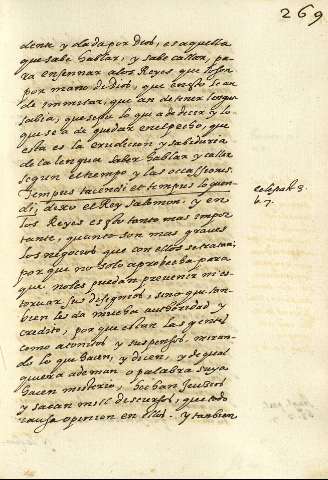 269
dena y dada por Dios, es aquella
que sabe hablar, y sabe callar, pa-
ra enseñar a los Reyes que lo son
por mano de Dios, que en esto le an
de immitar, que an de tener lengua
sabia, que sepa lo que a de dezir y lo
que se a de quedar en el pecho, que
esta es la erudicion y sabiduria
de la lengua saber hablar y callar
segun el tiempo y las occassiones.
Tempus tacendi et tempus loquen-
di; dixo el Rey Salomon. y en
los Reyes es esto tanto mas impor-
tante, quanto son mas graves
los negocios que con ellos se tratan;
por que no solo aprobecha para
que no les puedan prevenir ni es-
torvar sus disignios, sino que tam-
bien les da mucha authoridad y
credito, por que estan las gentes
como atonitos y suspensos, miran-
do lo que hacen, y dicen, y de qual
quiera ademan o palabra suya
hacen misterio, hechan juicios
y sacan mill discursos, que todo
causa opinion en ellos. y tambien